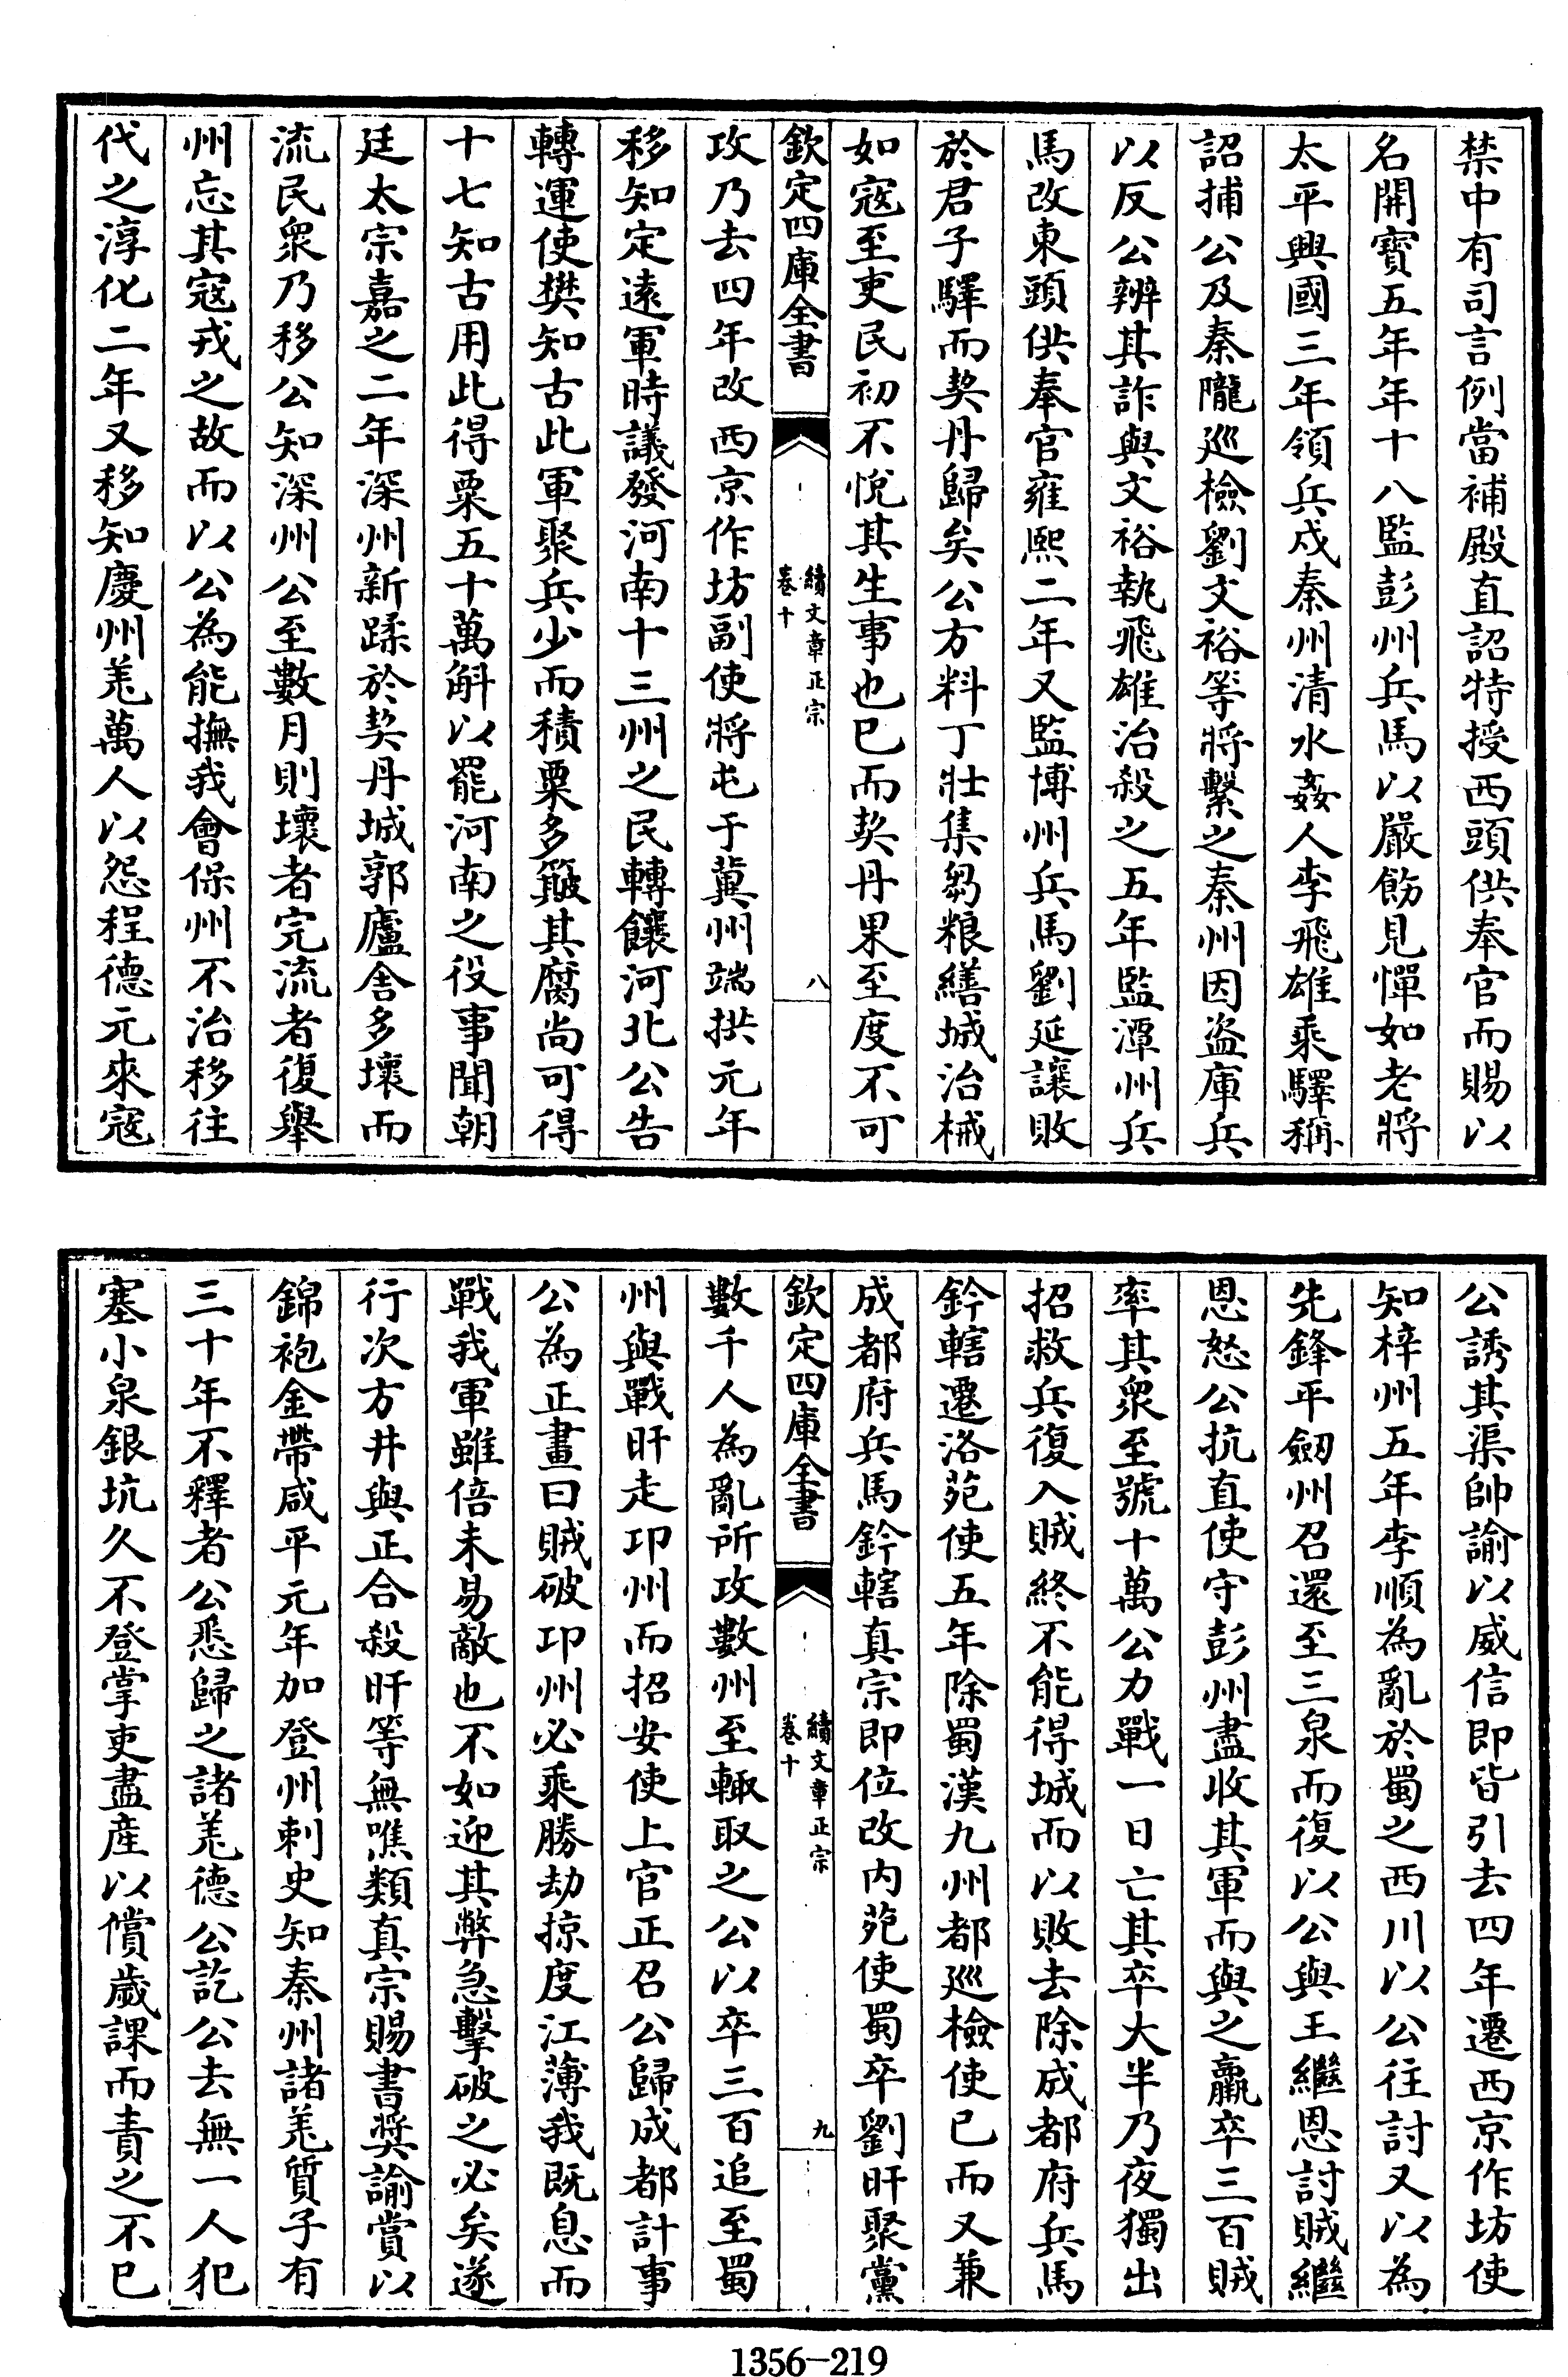 禁中有司言例當補殿直詔特授西頭供奉官而賜以
名開寶五年年十八監彭州兵馬以嚴飭見憚如老將
太平興國三年領兵戍秦州清水姦人李飛雄乘驛稱
詔捕公及秦隴巡檢劉文裕等將繫之秦州因盜庫兵
以反公辨其詐與文裕執飛雄治殺之五年監潭州兵
馬改東頭供奉官雍熙二年又監博州兵馬劉延讓敗
於君子驛而契丹歸矣公方料丁壯集芻粮繕城治械
如寇至吏民初不悅其生事也已而契丹果至度不可
欽定四庫全書
續文章正宗
卷十
八
攻乃去四年改西京作坊副使將屯于冀州端拱元年
移知定遠軍時議發河南十三州之民轉饟河北公告
轉運使樊知古此軍聚兵少而積粟多簸其腐尚可得
十七知古用此得粟五十萬斛以罷河南之役事聞朝
廷太宗嘉之二年深州新蹂於契丹城郭廬舍多壞而
流民衆乃移公知深州公至數月則壞者完流者復舉
州忘其寇戎之故而以公為能撫我會保州不治移往
代之淳化二年又移知慶州羌萬人以怨程德元來寇
公誘其渠帥諭以威信即皆引去四年遷西京作坊使
知梓州五年李順為亂於蜀之西川以公往討又以為
先鋒平劒州召還至三泉而復以公與王繼恩討賊繼
恩怒公抗直使守彭州盡收其軍而與之羸卒三百賊
率其衆至號十萬公力戰一日亡其卒大半乃夜獨出
招救兵復入賊終不能得城而以敗去除成都府兵馬
鈐轄遷洛苑使五年除蜀漢九州都巡檢使已而又兼
成都府兵馬鈐轄真宗即位改内苑使蜀卒劉旰聚黨
欽定四庫全書
續文章正宗
卷十
九
數千人為亂所攻數州至輙取之公以卒三百追至蜀
州與戰旰走卭州而招安使上官正召公歸成都計事
公為正畫曰賊破卭州必乘勝劫掠度江薄我既息而
戰我軍雖倍未易敵也不如迎其弊急擊破之必矣遂
行次方井與正合殺旰等無噍類真宗賜書奬諭賞以
錦袍金帶咸平元年加登州刺史知秦州諸羌質子有
三十年不釋者公悉歸之諸羌德公訖公去無一人犯
塞小泉銀坑久不登掌吏盡産以償歲課而責之不已
1356-219